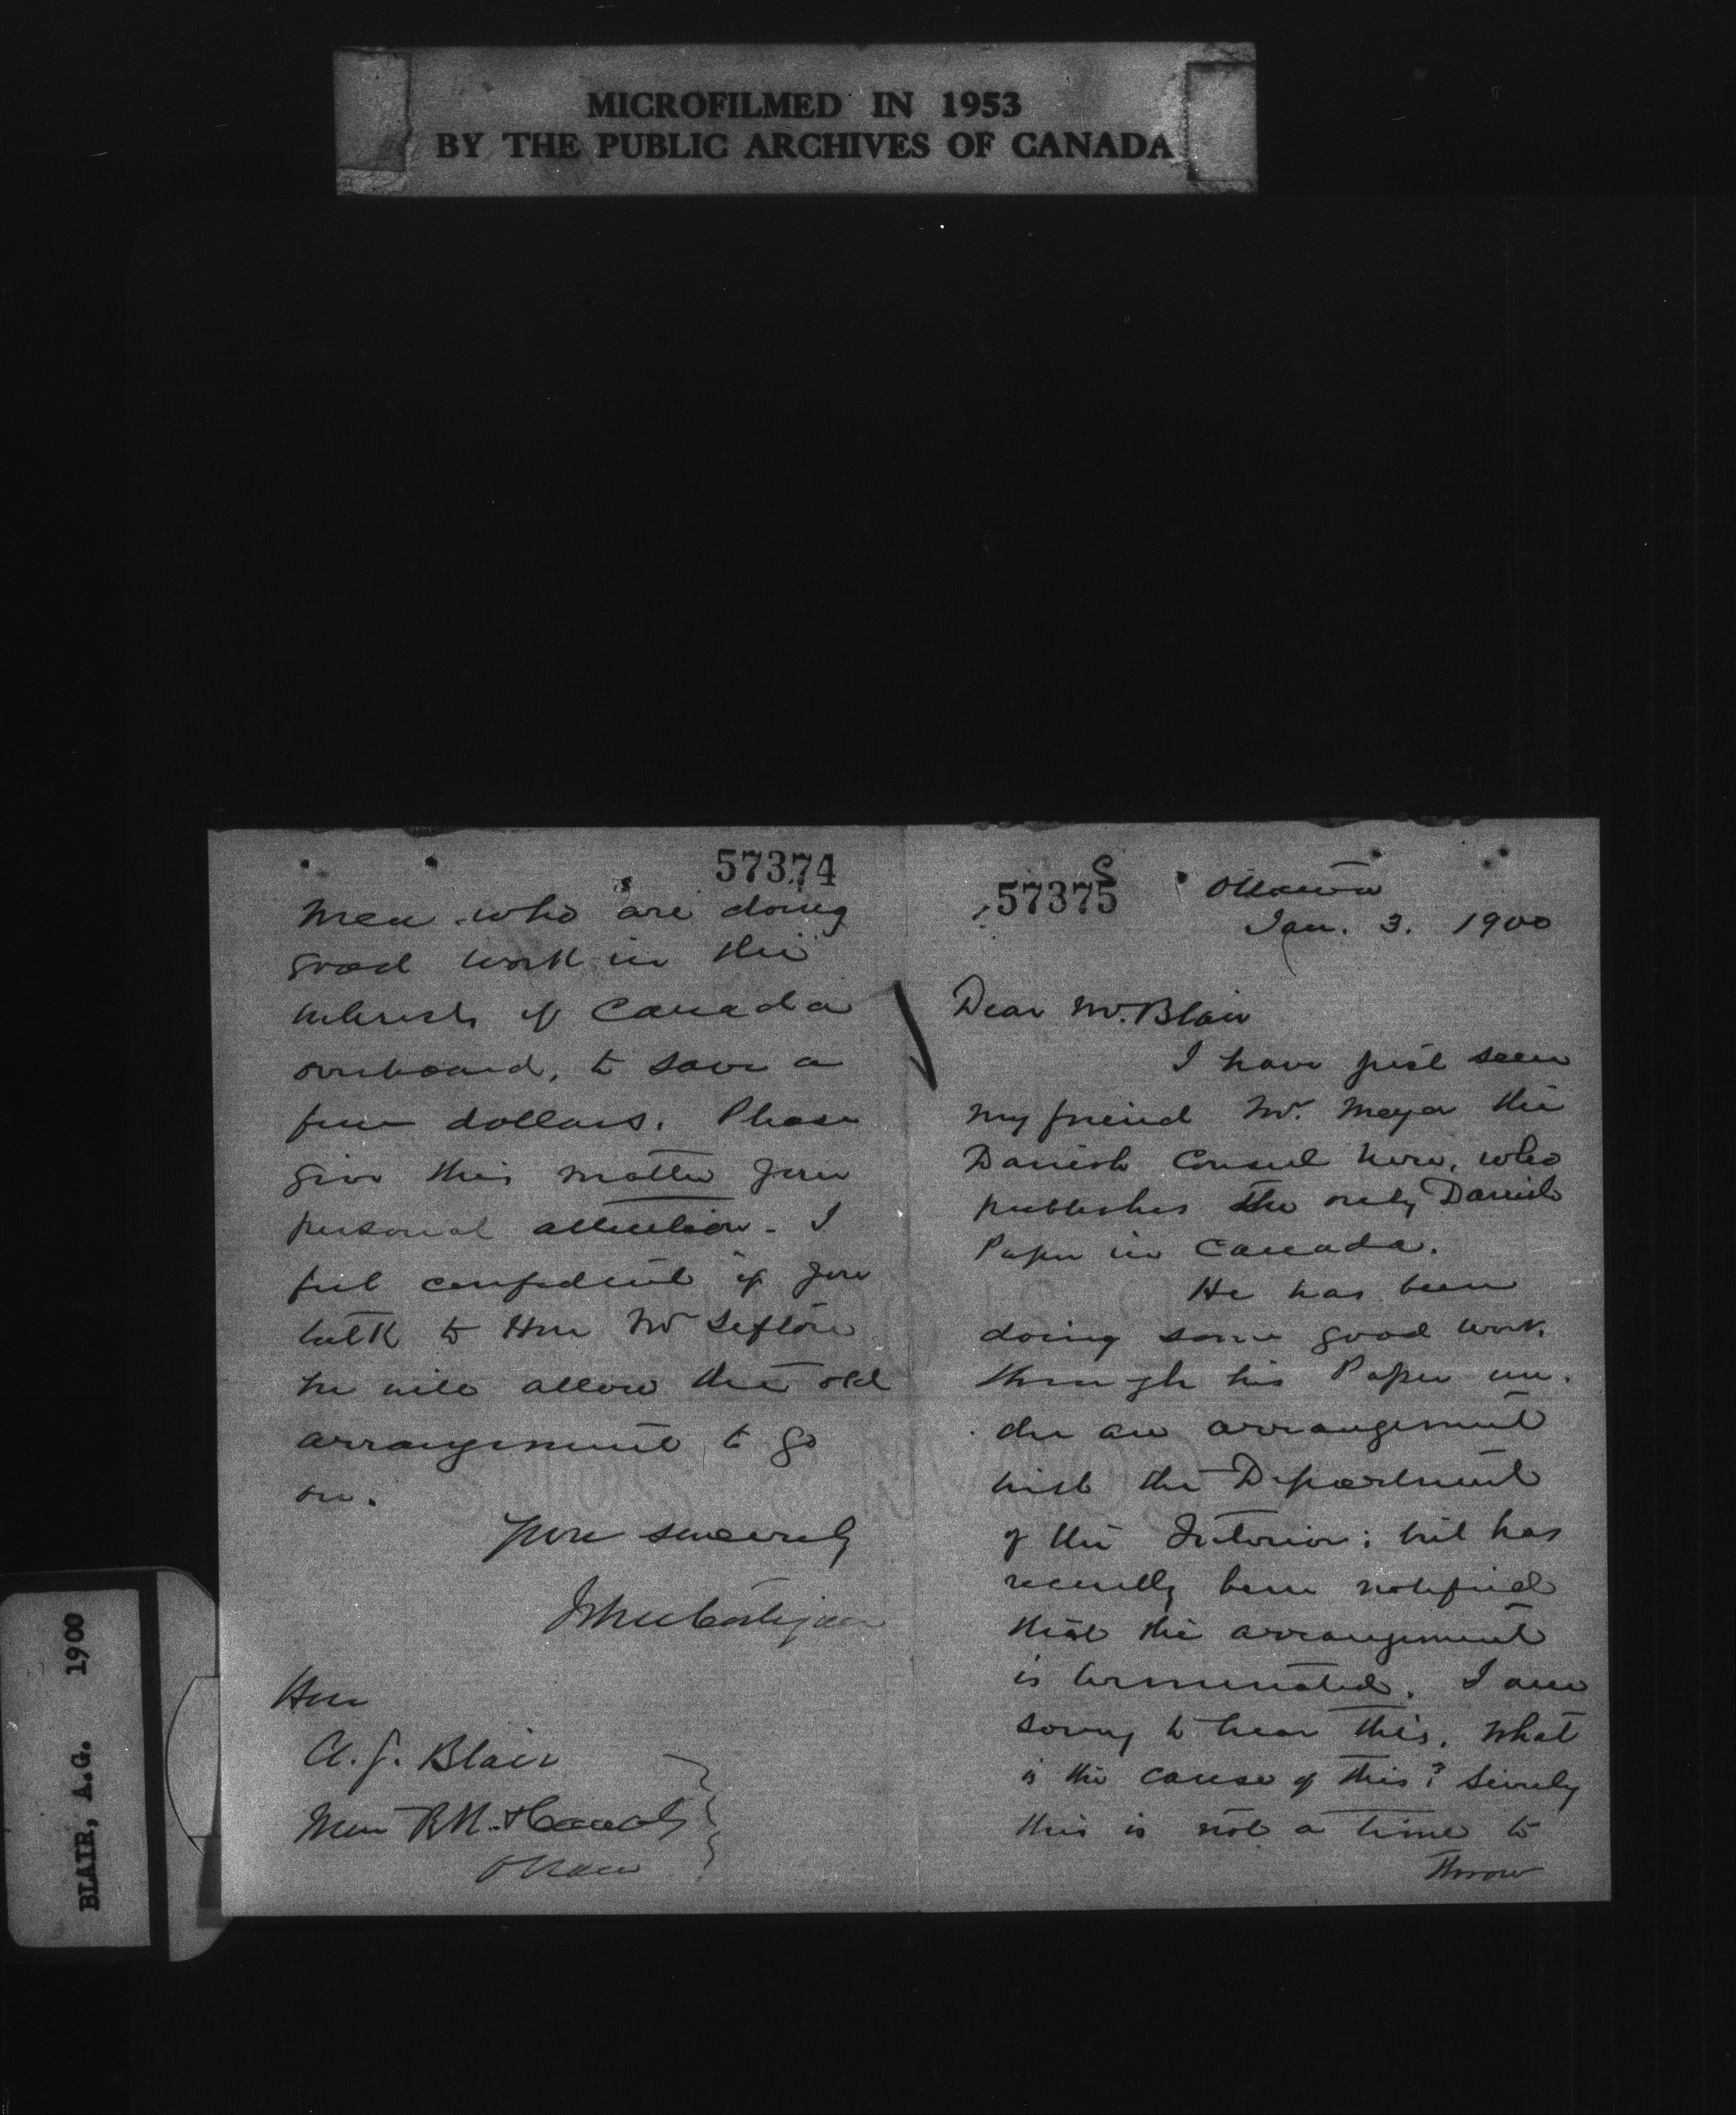 MICROFILMED IN 1953
BY THE PUBLIC ARCHIVES OF CANADA
57375
Ottawa
Jan. 3. 1900
Dear Mr. Blair
I have just seen
my friend Mr. Meyer the
Danish Consul here, who
publishes the only Danish
Paper in Canada.
He has been
doing some good work
through his Paper un-
der an arrangement
with the Department
of the Interior; but has
recently been notified
that the arrangement
is terminated. I am
sorry to hear this. What
is the cause of this? Surely
this is not a time to
throw
57374
men who are doing
good work in the
interests of Canada
overboard, to save a
few dollars. Please
give this matter your
personal attention. I
feel confident if you
talk to Hon Mr Sifton
he will allow the old
arrangement to go
on.
Yours sincerely
John Costigan
Hon
A. G. Blair
Min R.R. & Canals
Ottawa
BLAIR, A.G. 1900